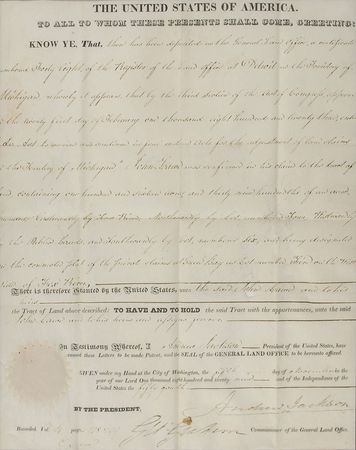 THE UNITED STATES OF AMERICA.
TO ALL TO WHOM THESE PRESENTS SHALL COME, GREETING:
KNOW YE, That, there has been deposited in the General Land Office, a certificate
numbered Forty Eight, of the Register of the Land Office at Detroit in the Territory of
Michigan whereby it appears, that by the third section of the Act of Congress approved
the twenty first day of February one thousand eight hundred and twenty three,
An Act to revive and continue in force certain Acts for the adjustment of land claims
the Territory of Michigan" was confirmed in his claim to the tract of
land containing one hundred and sixteen acres and thirty nine hundredths of an acre
bounded Eastwardly by River Northwardly by lot numbered Four Westwardly
by the Public Lands, and Southwardly by lot numbered six, and being designated
in the connected plat of the private claims at as lot number Five on the West
side of River,
There is therefore Granted by the United States, unto the said and to his
heirs
the Tract of Land above described: TO HAVE AND TO HOLD the said Tract with the appurtenances, unto the said
and to his heirs and assigns forever.
In Testimony Whereof, I Andrew Jackson President of the United States, have
caused these Letters to be made Patent, and the SEAL of the GENERAL LAND OFFICE to be hereunto affixed.
GIVEN under my Hand at the City of Washington, the day of in the
year of our Lord One thousand eight hundred and twenty and of the Independence of the
United States the fifty fourth
BY THE PRESIDENT, Andrew Jackson
Commissioner of the General Land Office.
Recorded, Vol.